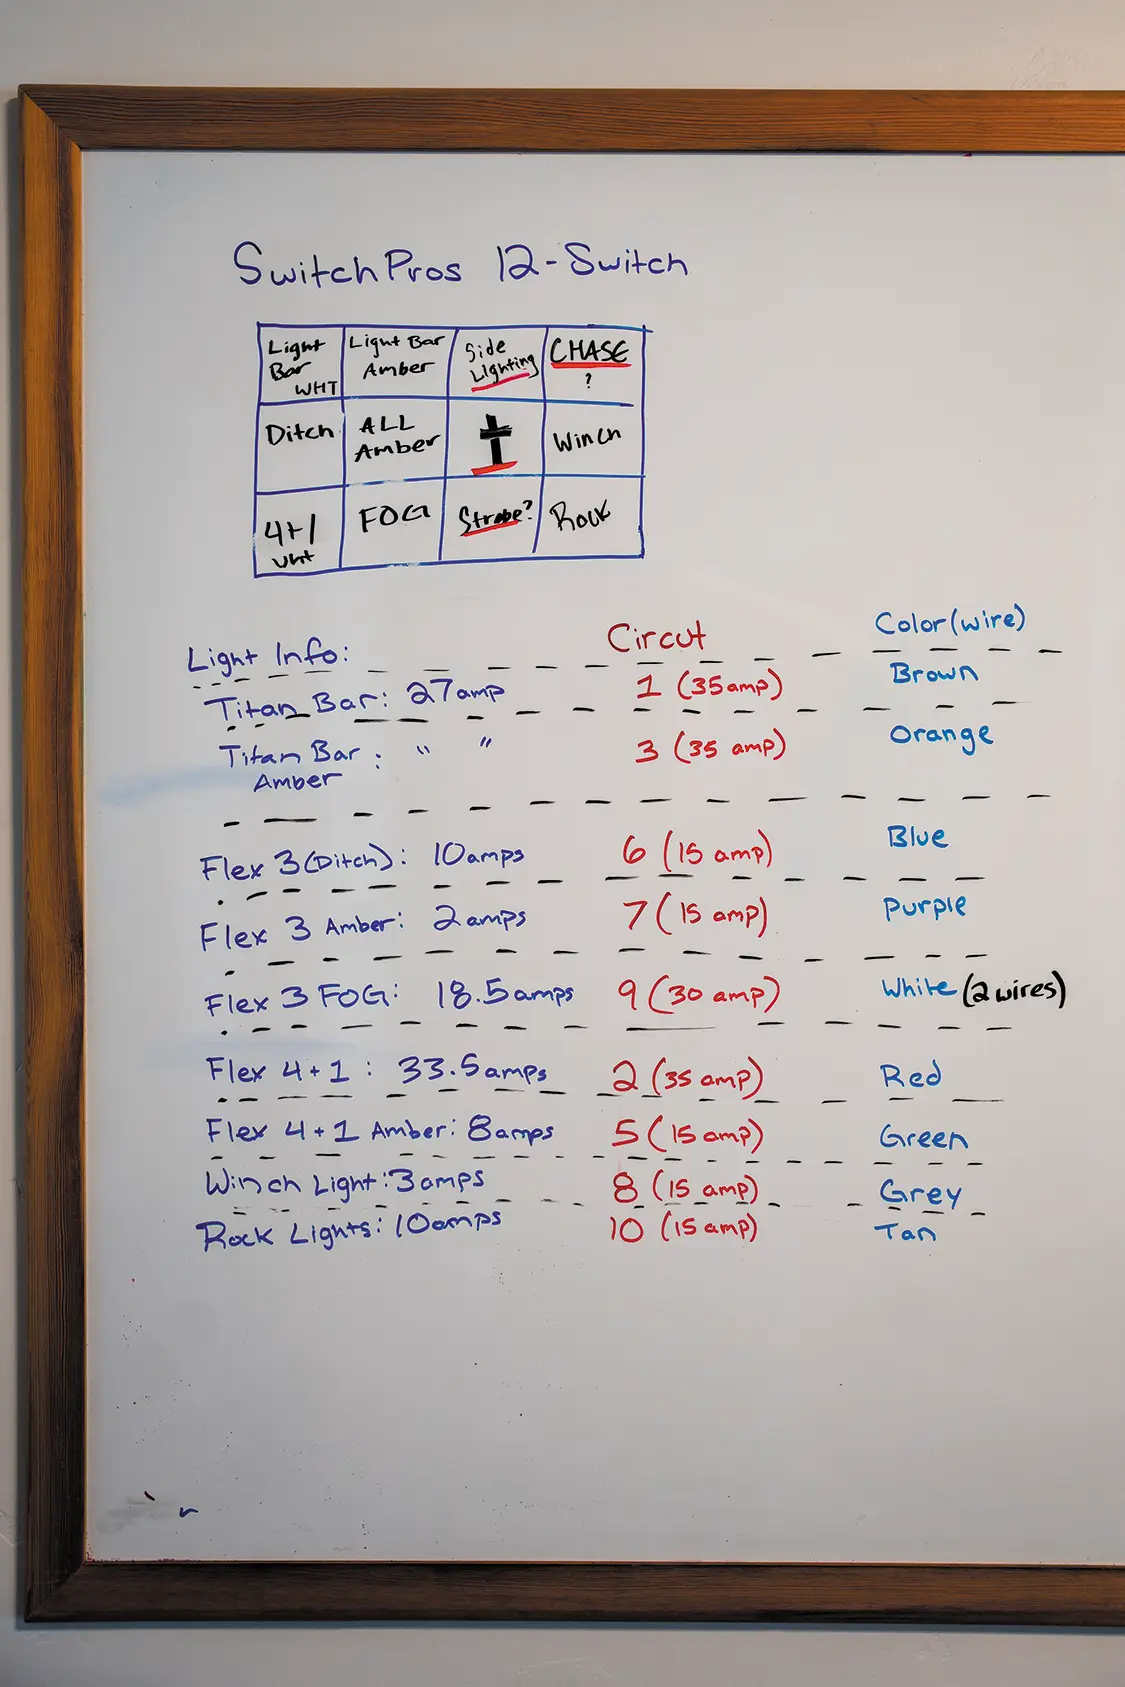 SwitchPros 12-Switch
Light Bar WHT
Light Bar Amber
Side Lighting
CHASE ?
Ditch
ALL Amber
Winch
4+1 wht
FOG
Strobe?
Rock
Light Info: Circut Color(wire)
Titan Bar: 27amp 1 (35amp) Brown
Titan Bar Amber : " " 3 (35 amp) Orange
Flex 3(Ditch): 10amps 6 (15 amp) Blue
Flex 3 Amber: 2amps 7 (15 amp) Purple
Flex 3 FOG: 18.5amps 9 (30 amp) White (2 wires)
Flex 4+1 : 33.5amps 2 (35 amp) Red
Flex 4+1 Amber: 8amps 5 (15 amp) Green
Winch Light: 3amps 8 (15 amp) Grey
Rock Lights: 10amps 10 (15 amp) Tan